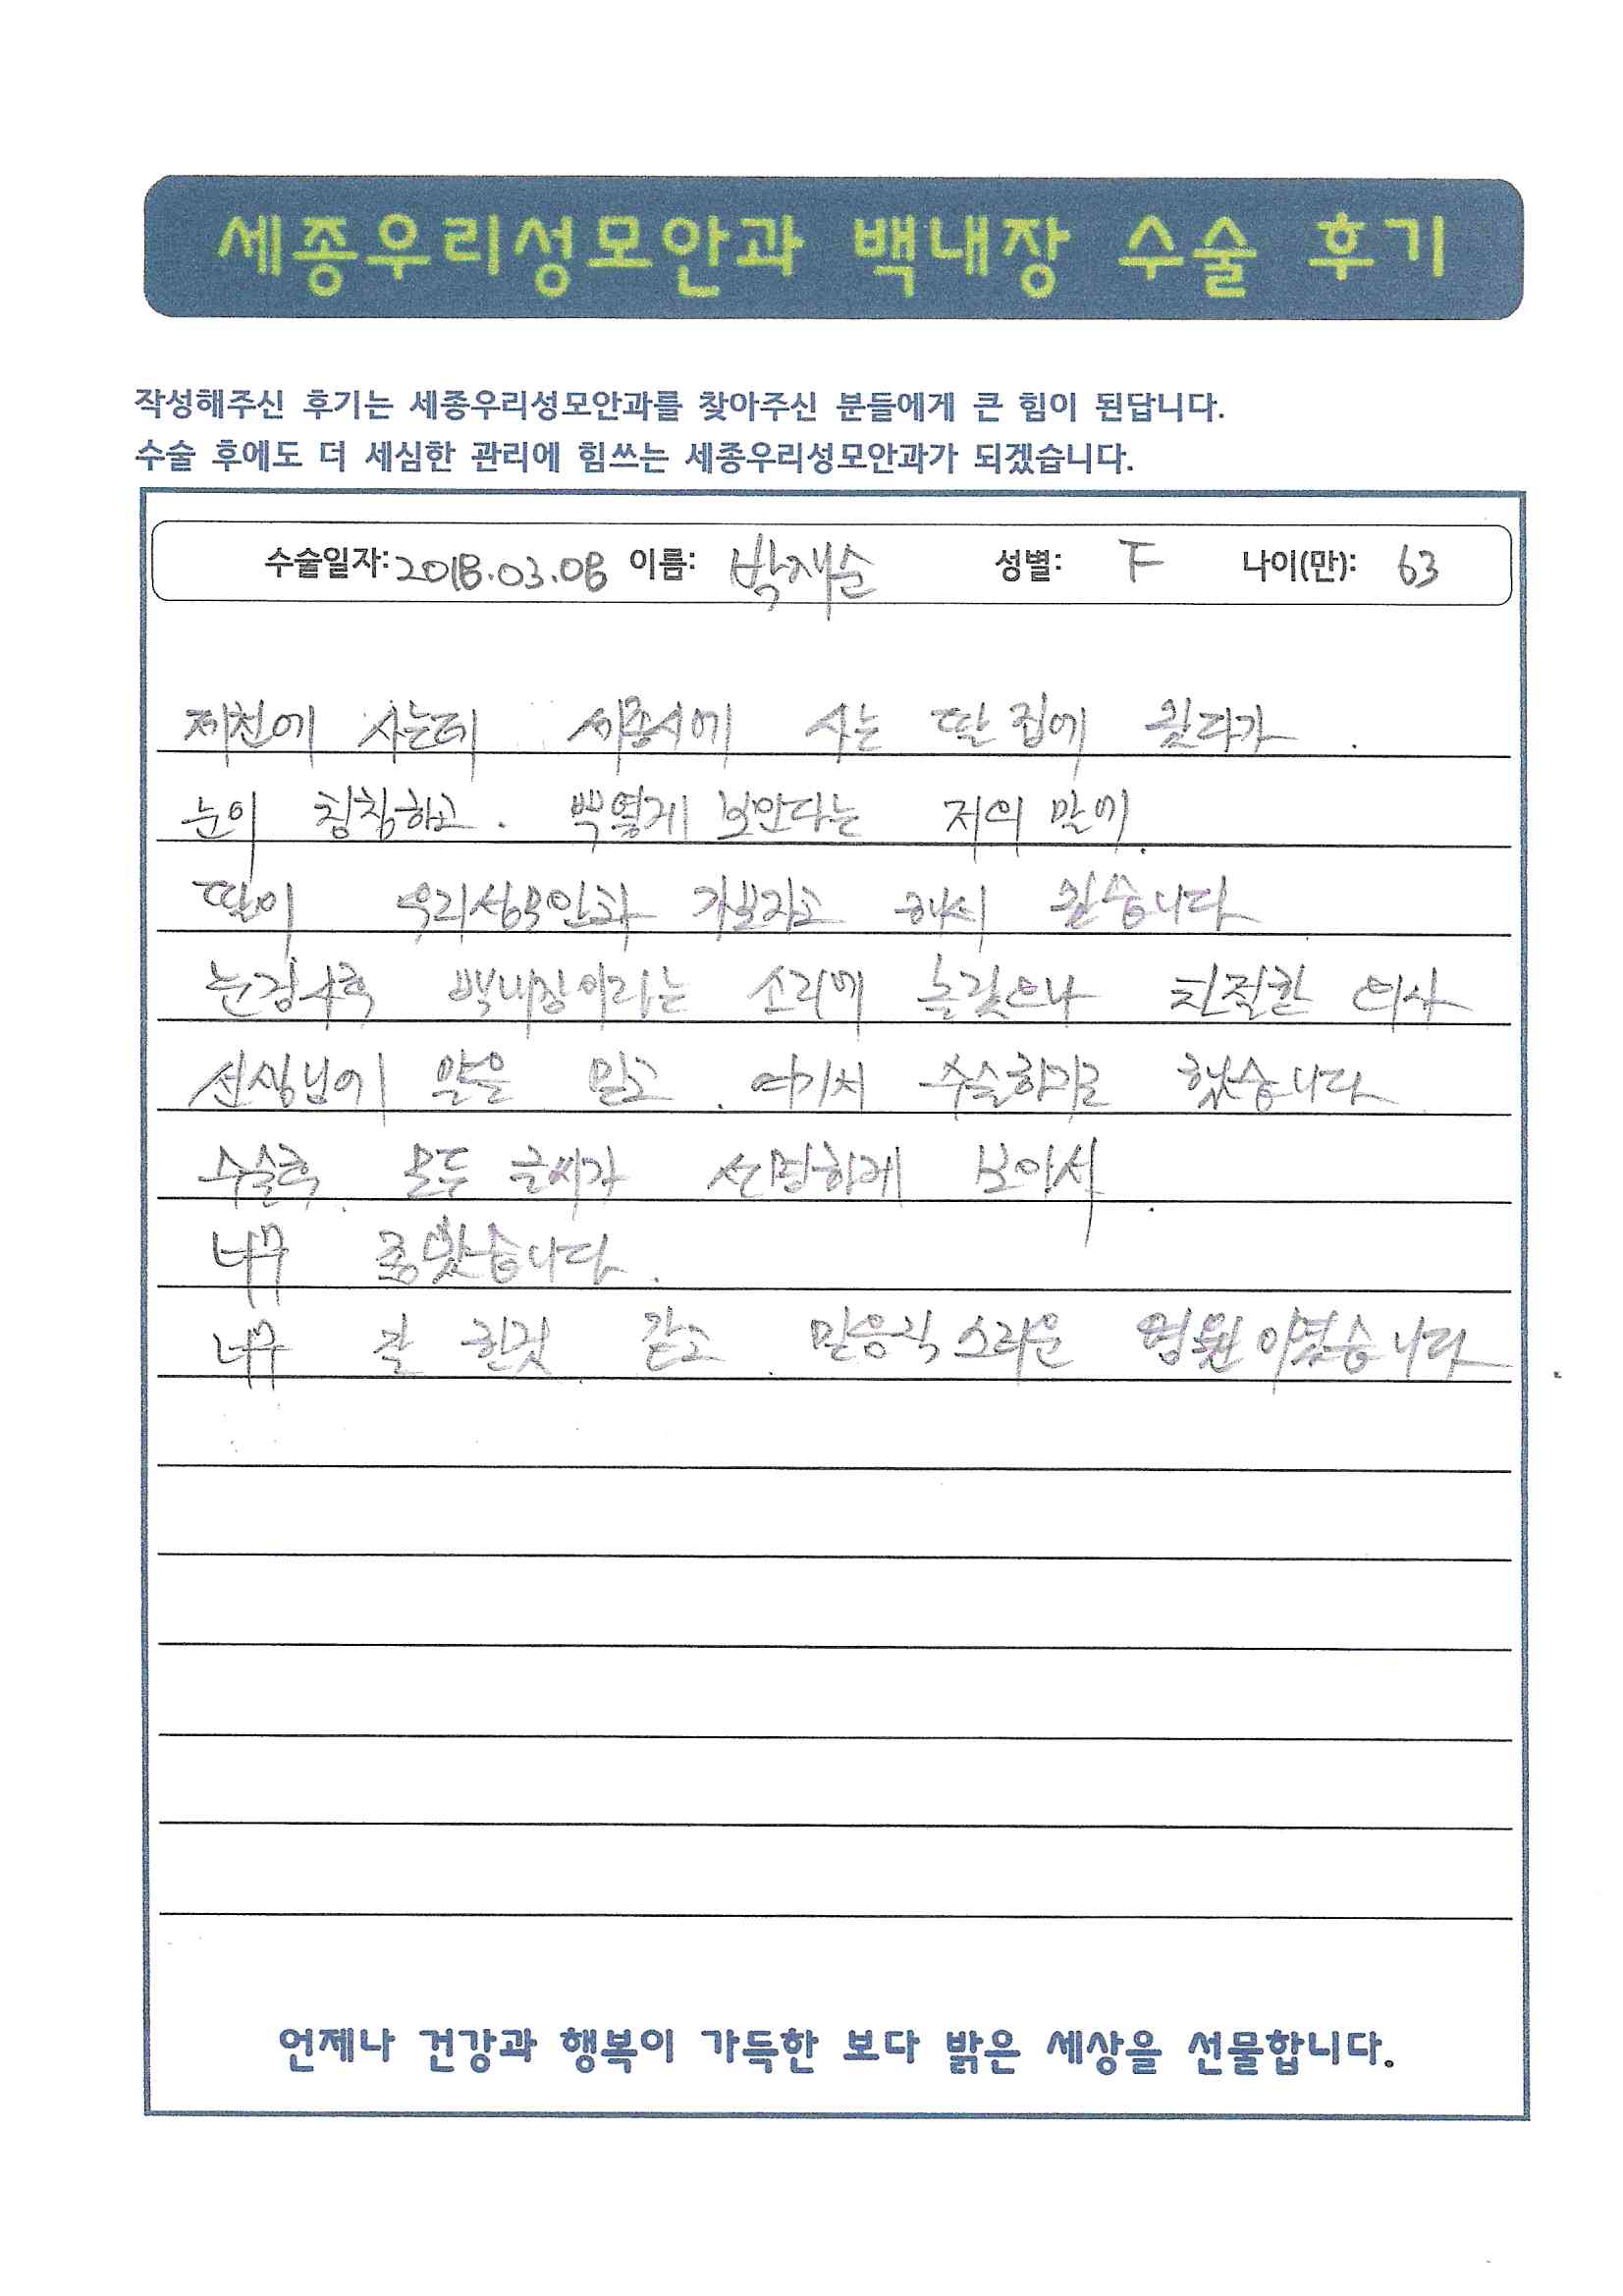 세종우리성모안과 백내장 수술 후기
작성해주신 후기는 세종우리성모안과를 찾아주신 분들에게 큰 힘이 된답니다.
수술 후에도 더 세심한 관리에 힘쓰는 세종우리성모안과가 되겠습니다.
수술일자: 2018.03.08 이름: 박재순 성별: F 나이(만): 63
제천에 사는데 세종시에 사는 딸집에 왔다가.
눈이 침침하고. 뿌옇게 보인다는 저의 말에.
딸이 우리성모안과 가보라고 해서 왔습니다
눈검사후 백내장이라는 소리에 놀랐으나 친절한 의사
선생님에 말을 믿고. 여기서 수술하기로 했습니다
수술후. 모두 글씨가 선명하게 보여서.
너무 좋았습니다.
너무 잘 한것 같고. 믿음직 스러운 병원 이였습니다.
언제나 건강과 행복이 가득한 보다 밝은 세상을 선물합니다.